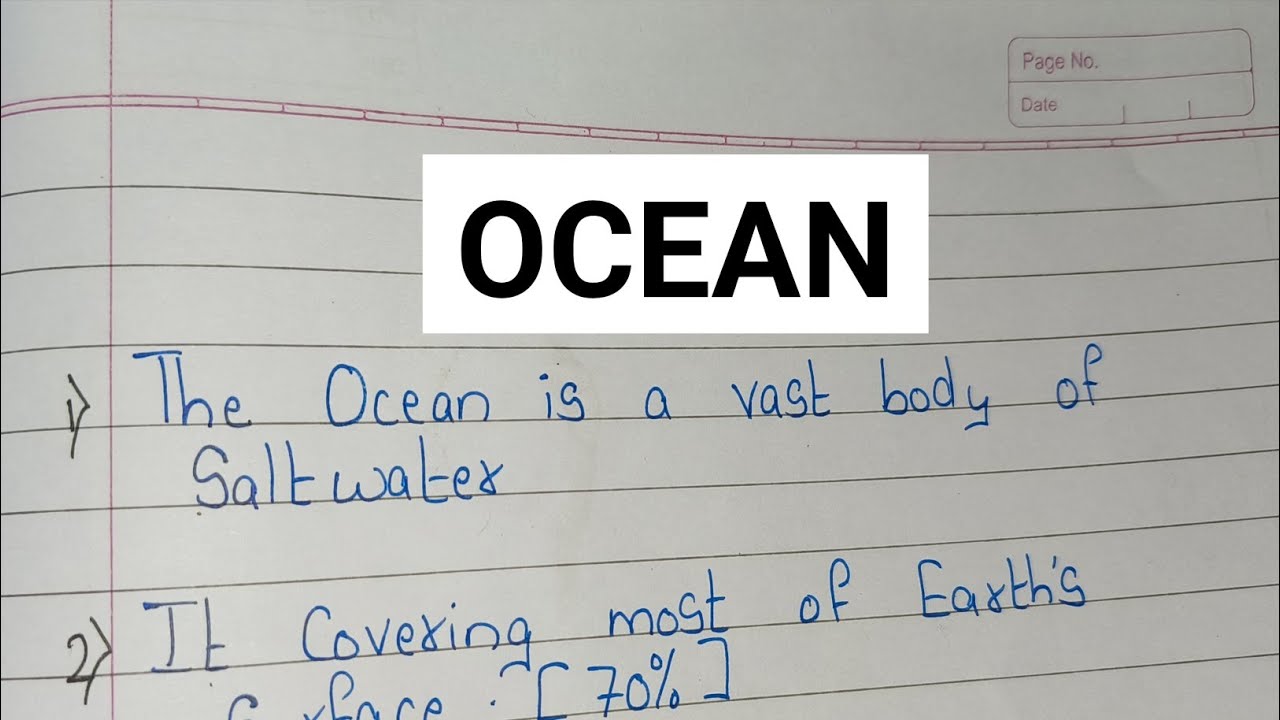 Page No.
Date
OCEAN
1) The Ocean is a vast body of
Saltwater
2) It Covering most of Earth's
Surface. [70%]